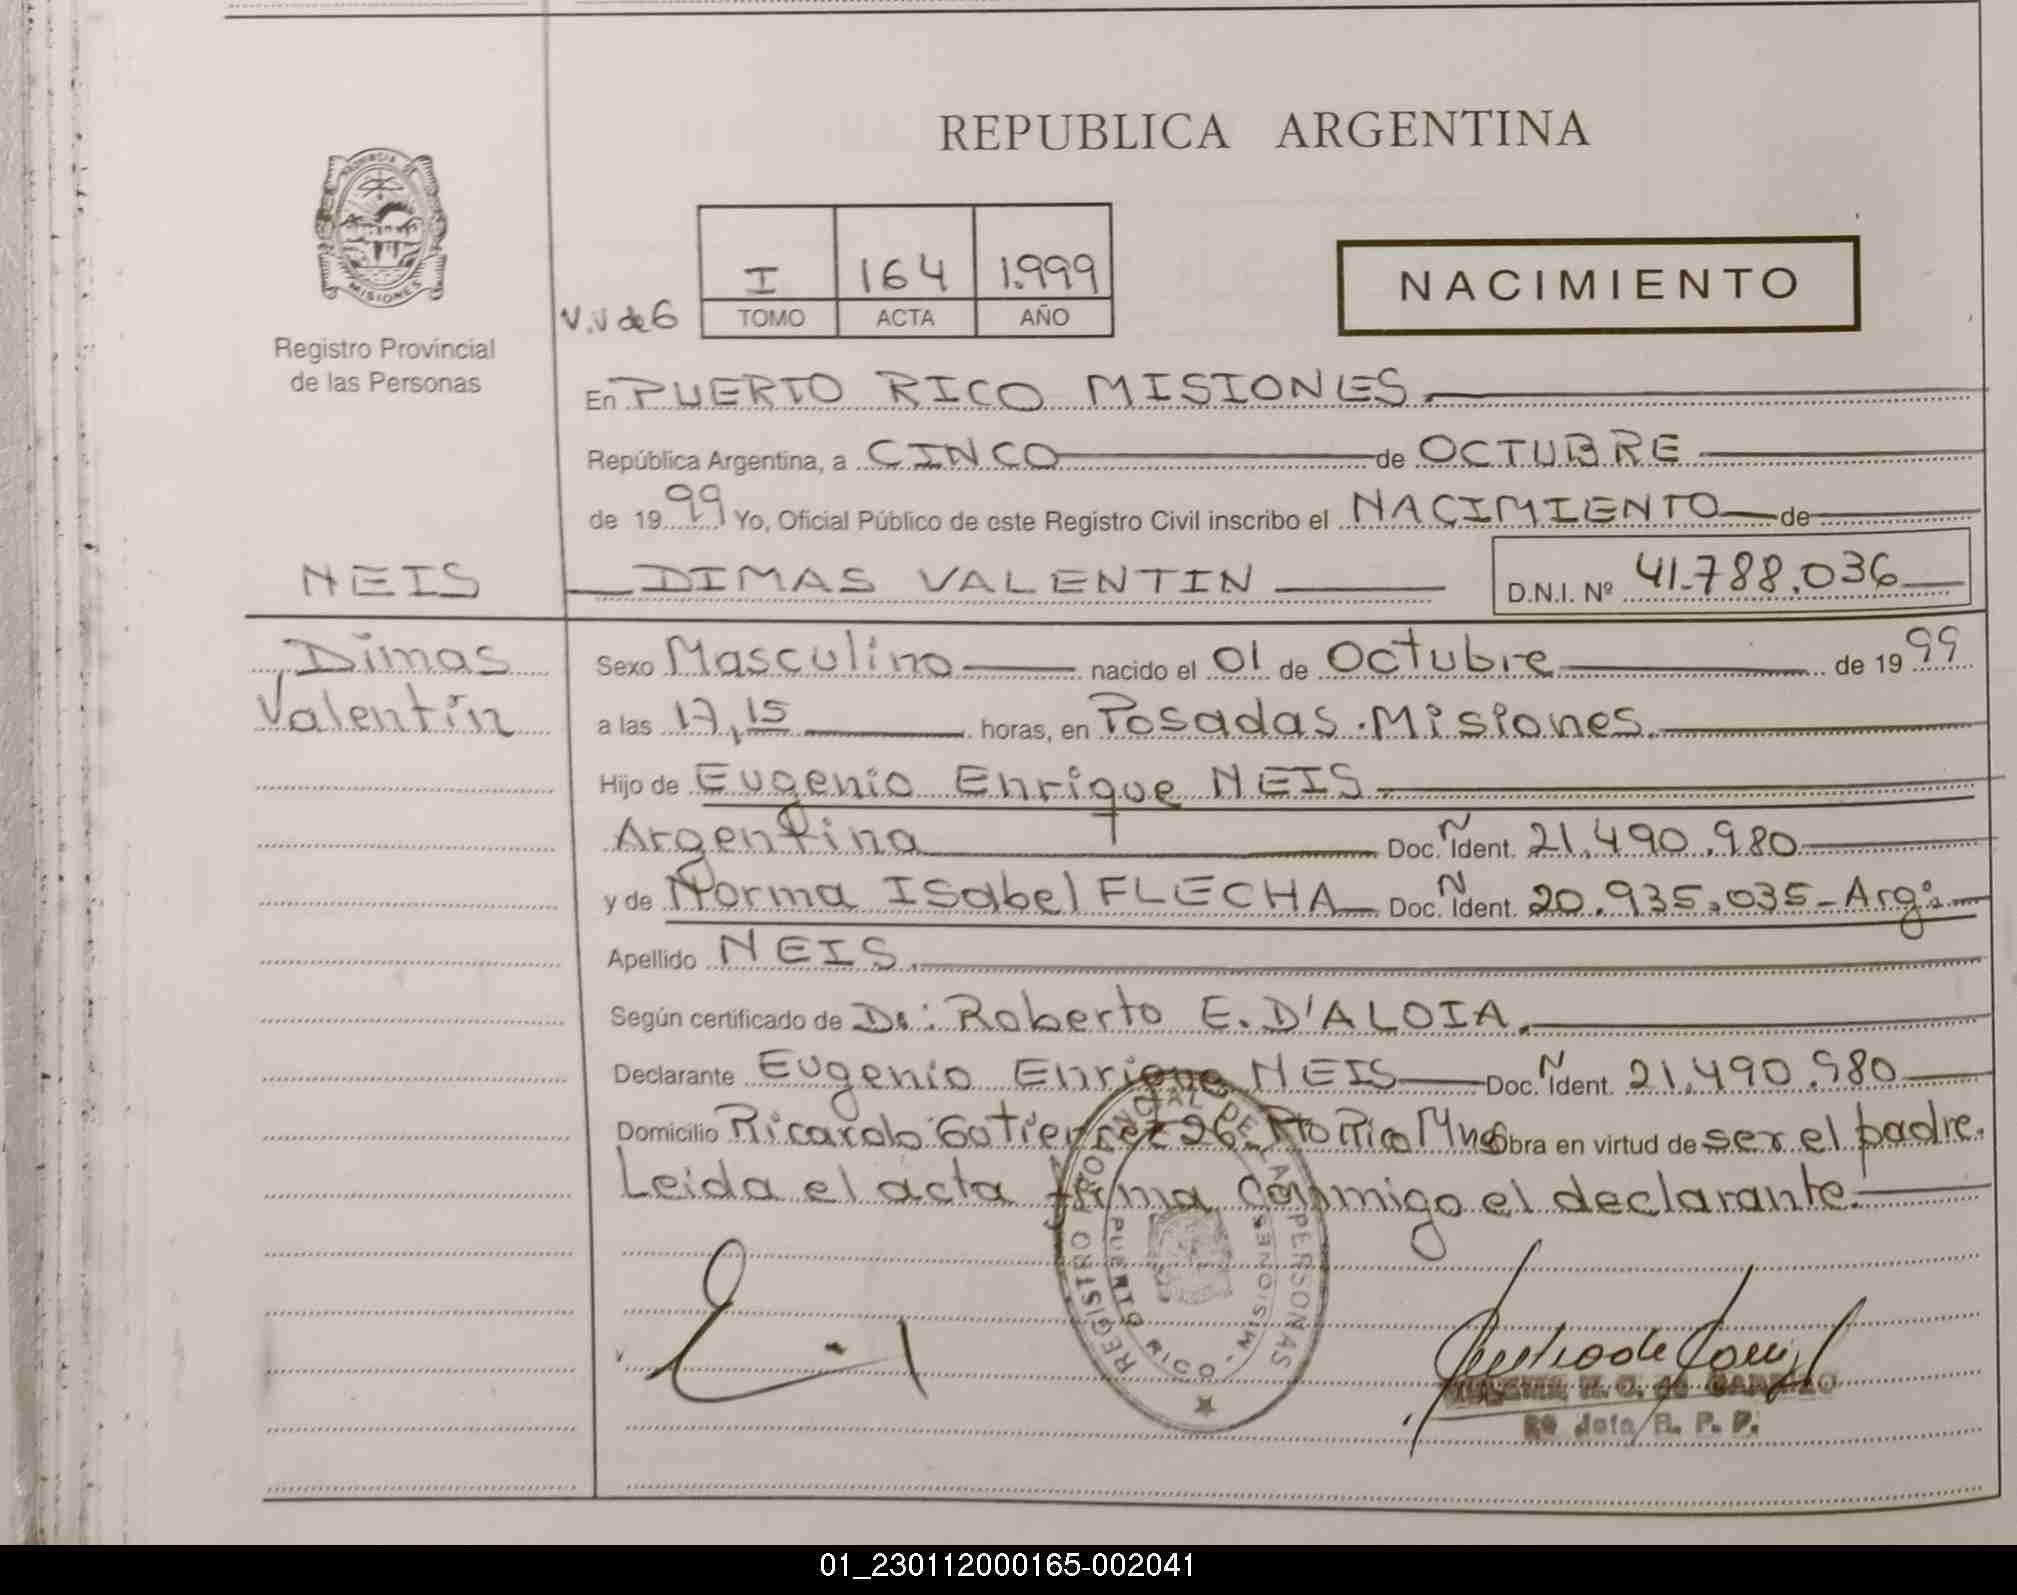 REPUBLICA ARGENTINA
PROVINCIA DE
MISIONES
Registro Provincial
de las Personas
V.V de 6
I 164 1.999
TOMO ACTA AÑO
NACIMIENTO
En PUERTO RICO MISIONES
República Argentina, a CINCO de OCTUBRE
de 1999 Yo, Oficial Público de este Registro Civil inscribo el NACIMIENTO de
NEIS DIMAS VALENTIN D.N.I. Nº 41.788.036
Dimas
Valentín
Sexo Masculino nacido el 01 de Octubre de 1999
a las 17,15 horas, en Posadas.Misiones.
Hijo de Eugenio Enrique NEIS.
Argentina Doc. Ñ Ident. 21.490.980
y de Norma Isabel FLECHA Doc. Ñ Ident. 20.935.035-Arg:
Apellido NEIS.
Según certificado de Dr: Roberto E. D'ALOIA.
Declarante Eugenio Enrique NEIS Doc. Ñ Ident. 21.490.980
Domicilio Ricardo Gutierrez 26. Pto Rico Mns Obra en virtud de ser el padre.
Leída el acta firma conmigo el declarante.
REGISTRO PROVINCIAL DE LAS PERSONAS
PUERTO RICO - MISIONES
Jefe R. P. P.
01_230112000165-002041